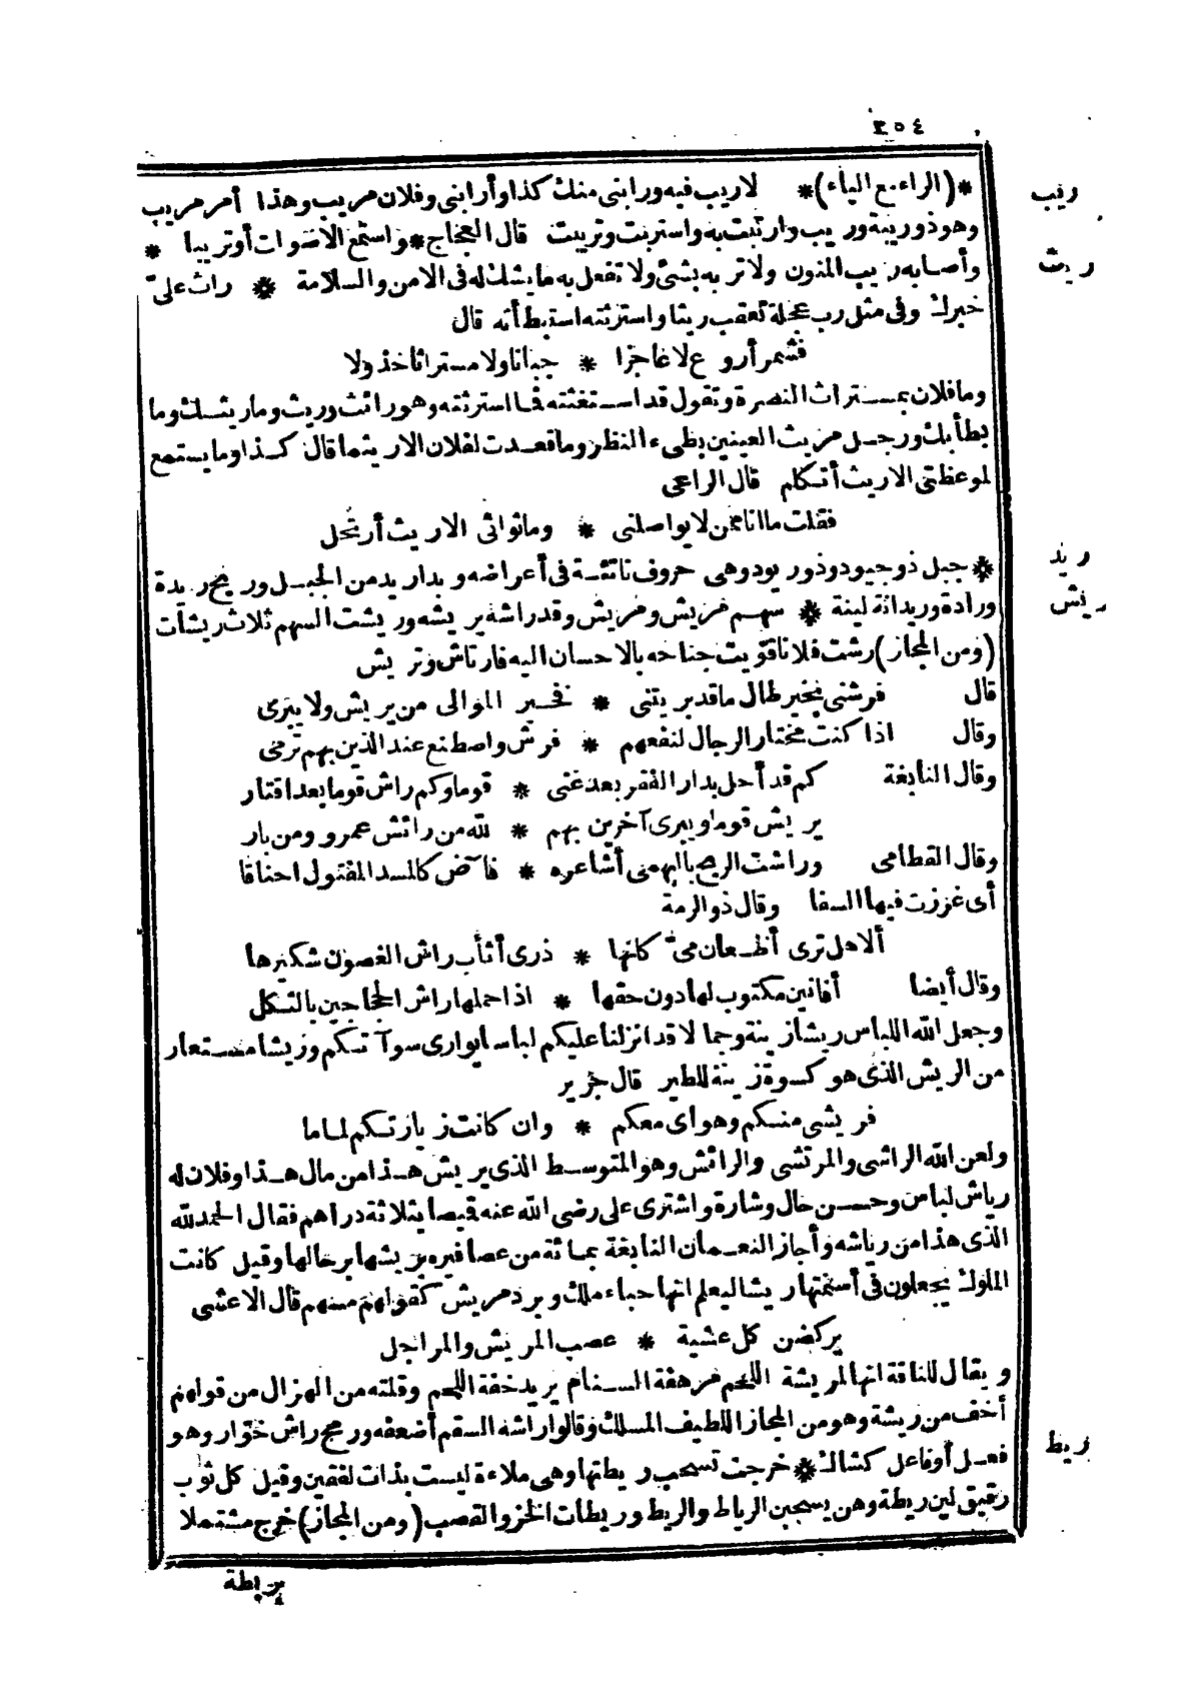 ٢٥٤
*(الراء مع الياء)* لا ريب فيه ورابنى منك كذا وأرابنى وفلان مريب وهذا أمر مريب
ريب
وهو ذو ريبة وريب وارتبت به واستربت وتريبت قال العجاج * واستمع الاصوات أو تريبا *
وأصابه ريب المنون ولا تر به بشئ ولا تفعل به ما يشك له فى الامن والسلامة * راث علىّ
ريث
خبرك وفى مثل رب عجلة تعقب ريثا واسترثته استبطأته قال
فشمر أروع لا عاجزا * جبانا ولا مستراثا خذولا
وما فلان بمستراث النصرة وتقول قد استغثته فما استرثته وهو رائث وريث وما ريثك وما
بطأ بك ورجل مريث العينين بطىء النظر وما قعدت لفلان الا ريثما قال كذا وما يستمع
لموعظتى الا ريث أتكلم قال الراعى
فقلت ما انا ممن لا يواصلنى * وما ثوائى الا ريث أرتحل
* جبل ذو حيود وذو ريود وهى حروف ناتئة فى أعراضه وبدا ريد من الجبل وريح ريدة
ريد
ورادة وريدانة لينة * سهم مريش ومريش وقد راشه يريشه وريشت السهم ثلاث ريشات
ريش
(ومن المجاز) رشت فلانا قويت جناحه بالاحسان اليه فارتاش وتريش
قال فرشنى بخير طال ما قد بريتنى * فخير الموالى من يريش ولا يبرى
وقال اذا كنت مختار الرجال لنفعهم * فرش واصطنع عند الذين بهم ترمى
وقال النابغة كم قد أحل بدار الفقر بعد غنى * قوما وكم راش قوما بعد اقتار
يريش قوما ويبرى آخرين بهم * لله من رائش عمرو ومن بار
وقال القطامى وراشت الريح بالبهمى أشاعره * فآض كالمسد المفتول احناقا
أى غرزت فيها السفا وقال ذو الرمة
ألا هل ترى أظعان مىّ كانها * ذرى أثأب راش الغصون شكيرها
وقال أيضا أفانين مكتوب لها دون حقها * اذا حملها راش الحجاجين بالثكل
وجعل الله اللباس ريشا زينة وجمالا قد انزلنا عليكم لباسا يوارى سوآتكم وريشا مستعار
من الريش الذى هو كسوة زينة للطير قال جرير
فريشى منكم وهواى معكم * وان كانت زيارتكم لماما
ولعن الله الراشى والمرتشى والرائش وهو المتوسط الذى يريش هذا من مال هذا وفلان له
رياش لباس وحسن حال وشارة واشترى على رضى الله عنه قميصا بثلاثة دراهم فقال الحمد لله
الذى هذا من رياشه وأجاز النعمان النابغة بمائة من عصافيره بريشها برحالها وقيل كانت
الملوك يجعلون فى أسنمتها ريشا ليعلم انها حباء ملك وبرد مريش كقولهم مسهم قال الاعشى
يركضن كل عشية * عصب المريش والمراجل
ويقال للناقة انها لمريشة اللحم مرهفة السنام يريد خفة اللحم وقلته من الهزال من قولهم
أخف من ريشة وهو من المجاز اللطيف المسلك وقالوا راشه السقم أضعفه ورمح راش خوّار وهو
فعل أو فاعل كشاك * خرجت تسحب ريطتها وهى ملاءة ليست بذات لفقين وقيل كل ثوب
ريط
رقيق لين ريطة وهن يسحبن الرياط والريط وريطات الخز والقصب (ومن المجاز) خرج مشتملا
بريطة